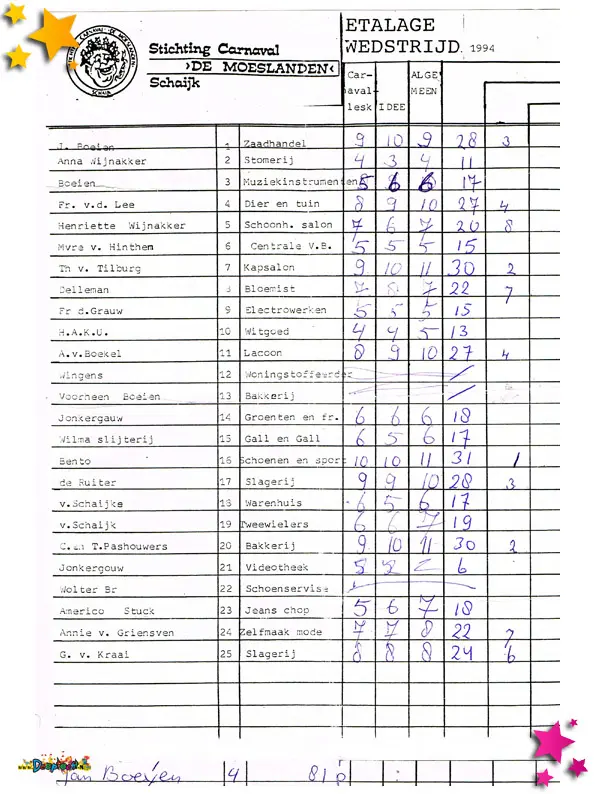 STICHTING CARNAVAL DE MOESLANDEN SCHAIJK
Stichting Carnaval
›DE MOESLANDEN‹
Schaijk
ETALAGE
WEDSTRIJD. 1994
Car-
aval-
lesk IDEE ALGE
MEEN
J. Boeien 1 Zaadhandel 9 10 9 28 3
Anna Wijnakker 2 Stomerij 4 3 4 11
Boeien 3 Muziekinstrumenten 5 6 6 17
Fr. v.d. Lee 4 Dier en tuin 8 9 10 27 4
Henriette Wijnakker 5 Schoonh. salon 7 6 7 20 8
Mvre v. Hinthem 6 Centrale V.B. 5 5 5 15
Th v. Tilburg 7 Kapsalon 9 10 11 30 2
Delleman 8 Bloemist 7 8 7 22 7
Fr d.Grauw 9 Electrowerken 5 5 5 15
H.A.K.U. 10 Witgoed 4 4 5 13
A.v.Boekel 11 Lacoon 8 9 10 27 4
Wingens 12 Woningstoffeerder /
Voorheen Boeien 13 Bakkerij /
Jonkergauw 14 Groenten en fr. 6 6 6 18
Wilma slijterij 15 Gall en Gall 6 5 6 17
Bento 16 Schoenen en sport 10 10 11 31 1
de Ruiter 17 Slagerij 9 9 10 28 3
v.Schaijke 18 Warenhuis 6 5 6 17
v.Schaijk 19 Tweewielers 6 6 7 19
C.en T.Pashouwers 20 Bakkerij 9 10 11 30 2
Jonkergouw 21 Videotheek 5 2 2 6
Wolter Br 22 Schoenservise
Americo Stuck 23 Jeans chop 5 6 7 18
Annie v. Griensven 24 Zelfmaak mode 7 7 8 22 7
G. v. Kraai 25 Slagerij 8 8 8 24 6
Jan Boeijen 4